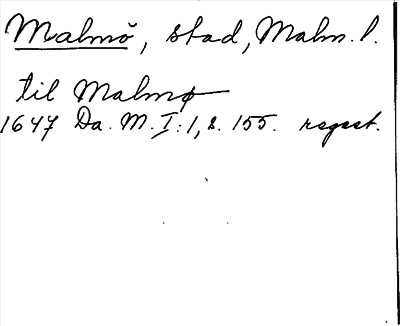 Malmö, stad, Malm. l.
til Malmø
1647 Da. M. I:1, s. 155. regest.